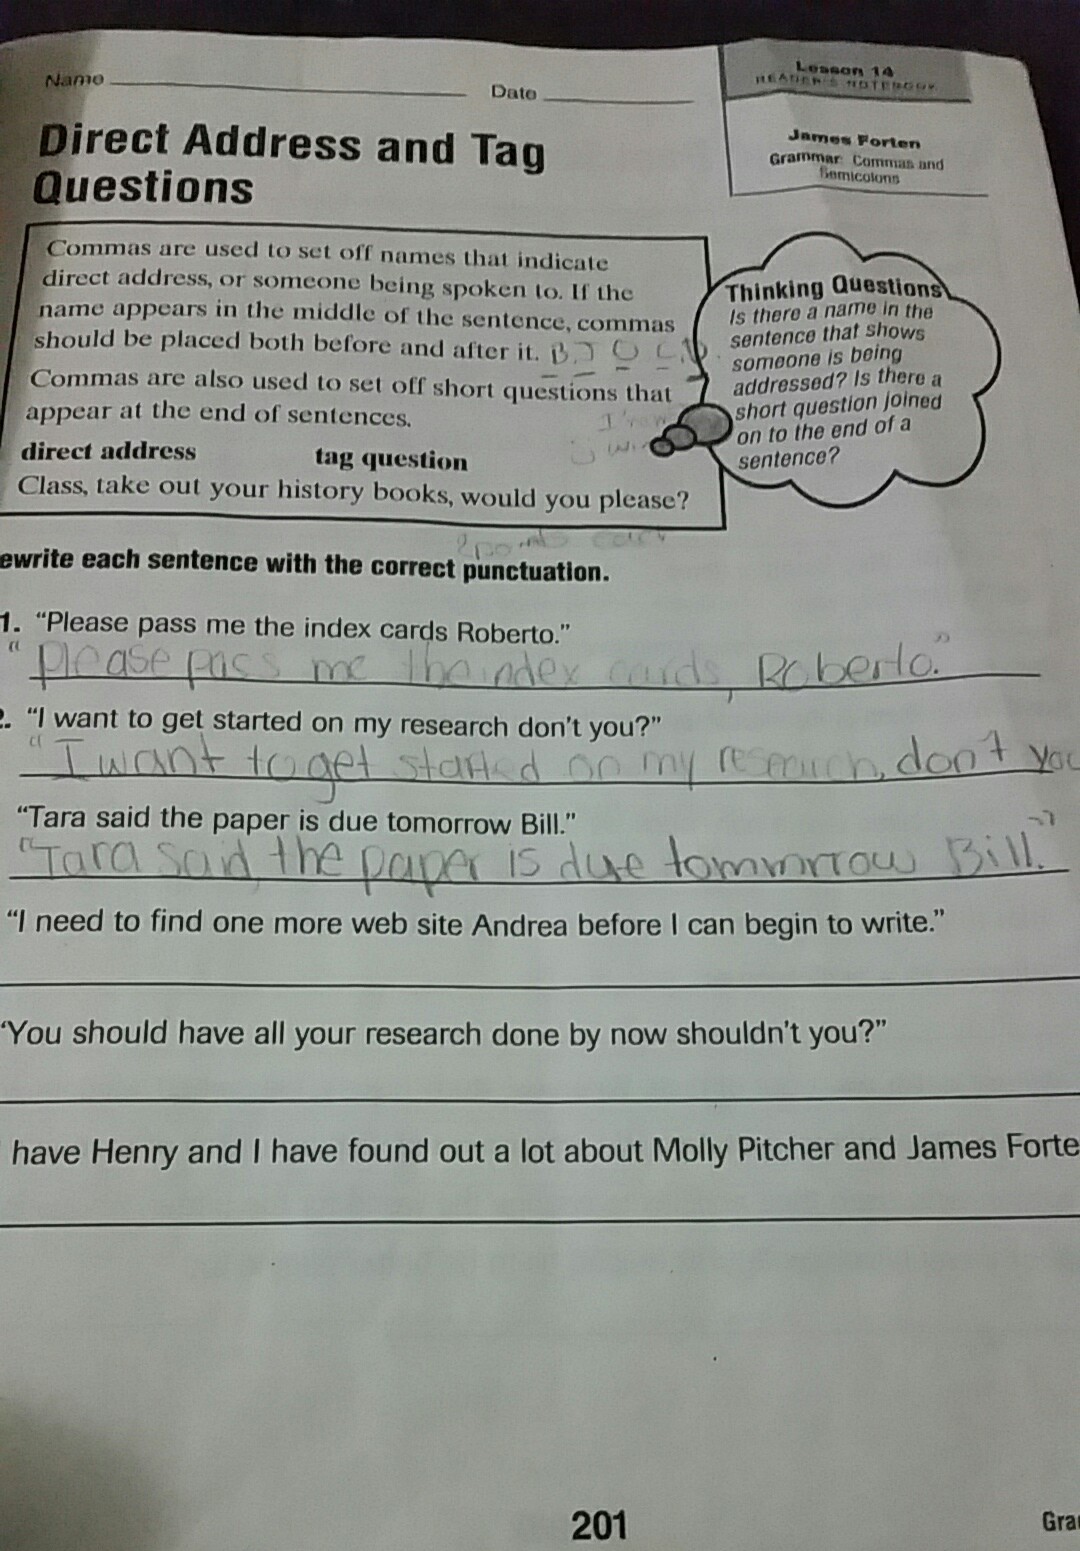 Name
Date
Lesson 14
READER'S NOTEBOOK
Direct Address and Tag
Questions
James Forten
Grammar: Commas and
Semicolons
Commas are used to set off names that indicate
direct address, or someone being spoken to. If the
name appears in the middle of the sentence, commas
should be placed both before and after it.
Commas are also used to set off short questions that
appear at the end of sentences.
direct address tag question
Class, take out your history books, would you please?
Thinking Questions
Is there a name in the
sentence that shows
someone is being
addressed? Is there a
short question joined
on to the end of a
sentence?
2 points each
ewrite each sentence with the correct punctuation.
1. “Please pass me the index cards Roberto.”
“please pass me the index cards, Roberto.”
2. “I want to get started on my research don't you?”
“I want to get started on my research, don't you
“Tara said the paper is due tomorrow Bill.”
“Tara said, the paper is due tommrrow Bill.”
“I need to find one more web site Andrea before I can begin to write.”
“You should have all your research done by now shouldn't you?”
have Henry and I have found out a lot about Molly Pitcher and James Forte
201
Gra